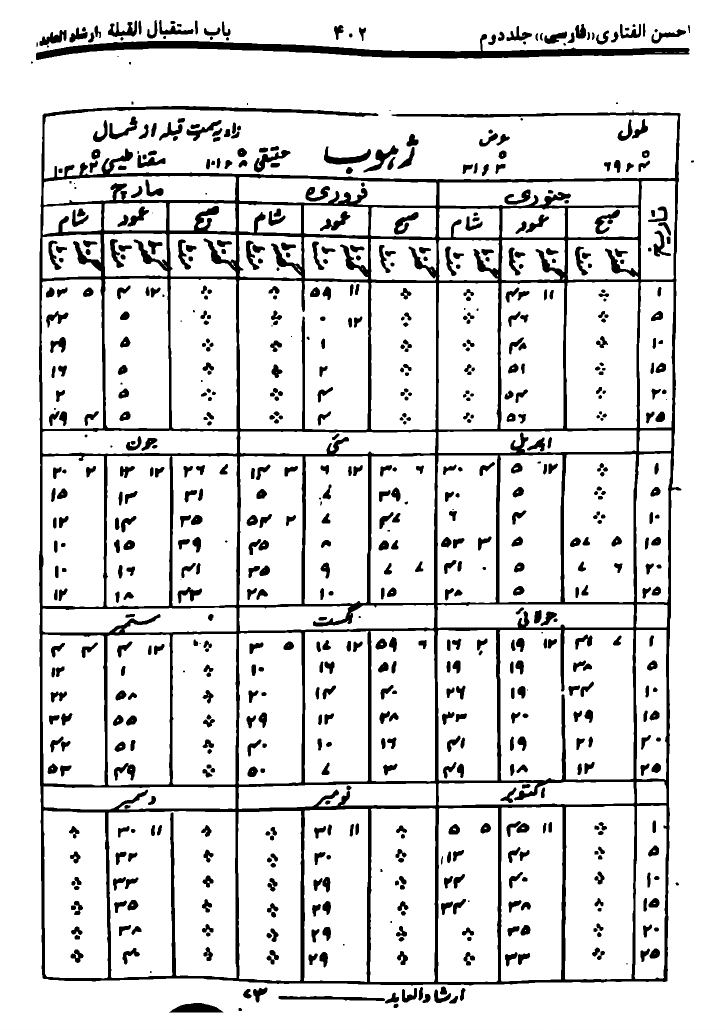 احسن الفتاوی «فارسی» جلد دوم ۴۰۲ باب استقبال القبلة «ارشاد العابد»
طول عرض ژہوب زاویہ سمت قبلہ از شمال
۶۹٫۴ ۳۱٫۳ حقیقی ۱۰۱٫۸ مقناطیسی ۱۰۳٫۲
تاریخ جنوری فروری مارچ
صبح عمود شام صبح عمود شام صبح عمود شام
گھنٹہ منٹ گھنٹہ منٹ گھنٹہ منٹ گھنٹہ منٹ گھنٹہ منٹ گھنٹہ منٹ گھنٹہ منٹ گھنٹہ منٹ گھنٹہ منٹ
۱ ※ ۱۱ ۴۳ ※ ※ ۱۱ ۵۹ ※ ※ ۱۲ ۴ ۵ ۵۳
۵ ※ ۴۶ ※ ※ ۱۲ ۰ ※ ※ ۵ ۴۳
۱۰ ※ ۴۸ ※ ※ ۱ ※ ※ ۵ ۲۹
۱۵ ※ ۵۱ ※ ※ ۲ ※ ※ ۵ ۱۶
۲۰ ※ ۵۴ ※ ※ ۴ ※ ※ ۵ ۲
۲۵ ※ ۵۶ ※ ※ ۴ ※ ※ ۵ ۴ ۴۹
اپریل مئی جون
۱ ※ ۱۲ ۵ ۴ ۳۰ ۶ ۳۰ ۱۲ ۶ ۳ ۱۴ ۷ ۲۶ ۱۲ ۱۲ ۲ ۲۰
۵ ※ ۵ ۲۰ ۳۹ ۷ ۵ ۳۱ ۱۳ ۱۵
۱۰ ※ ۴ ۶ ۴۷ ۷ ۲ ۵۴ ۳۵ ۱۴ ۱۲
۱۵ ۵ ۵۷ ۵ ۳ ۵۳ ۵۷ ۸ ۴۵ ۳۹ ۱۵ ۱۰
۲۰ ۶ ۷ ۵ ۴۱ ۷ ۷ ۹ ۳۵ ۴۱ ۱۶ ۱۰
۲۵ ۱۷ ۵ ۲۸ ۱۵ ۱۰ ۲۸ ۴۳ ۱۸ ۱۲
جولائی اگست ستمبر
۱ ۷ ۴۱ ۱۲ ۱۹ ۲ ۱۶ ۶ ۵۹ ۱۲ ۱۷ ۵ ۳ ※ ۱۲ ۴ ۴ ۴
۵ ۳۸ ۱۹ ۱۹ ۵۱ ۱۶ ۱۰ ※ ۱ ۱۲
۱۰ ۳۴ ۱۹ ۲۶ ۴۰ ۱۴ ۲۰ ※ ۵۸ ۲۲
۱۵ ۲۹ ۲۰ ۳۳ ۲۸ ۱۲ ۲۹ ※ ۵۵ ۳۲
۲۰ ۲۱ ۱۹ ۴۱ ۱۶ ۱۰ ۴۰ ※ ۵۱ ۴۲
۲۵ ۱۲ ۱۸ ۴۹ ۳ ۷ ۵۰ ※ ۴۹ ۵۳
اکتوبر نومبر دسمبر
۱ ※ ۱۱ ۴۵ ۵ ۵ ※ ۱۱ ۳۱ ※ ※ ۱۱ ۳۰ ※
۵ ※ ۴۲ ۱۳ ※ ۳۰ ※ ※ ۳۲ ※
۱۰ ※ ۴۰ ۲۴ ※ ۲۹ ※ ※ ۳۳ ※
۱۵ ※ ۳۸ ۳۴ ※ ۲۹ ※ ※ ۳۵ ※
۲۰ ※ ۳۵ ※ ※ ۲۹ ※ ※ ۳۸ ※
۲۵ ※ ۳۳ ※ ※ ۲۹ ※ ※ ۴۰ ※
ارشاد العابد ــــــ ۷۳